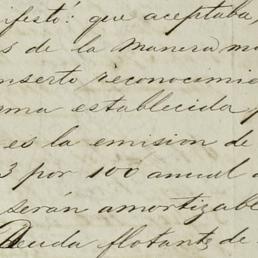 ifestó: que aceptaba,
s de la manera ma
nserto reconocimie
rma establecida p
es la emision de
3 por 100 anual a
serán amortizable
Deuda flotante de